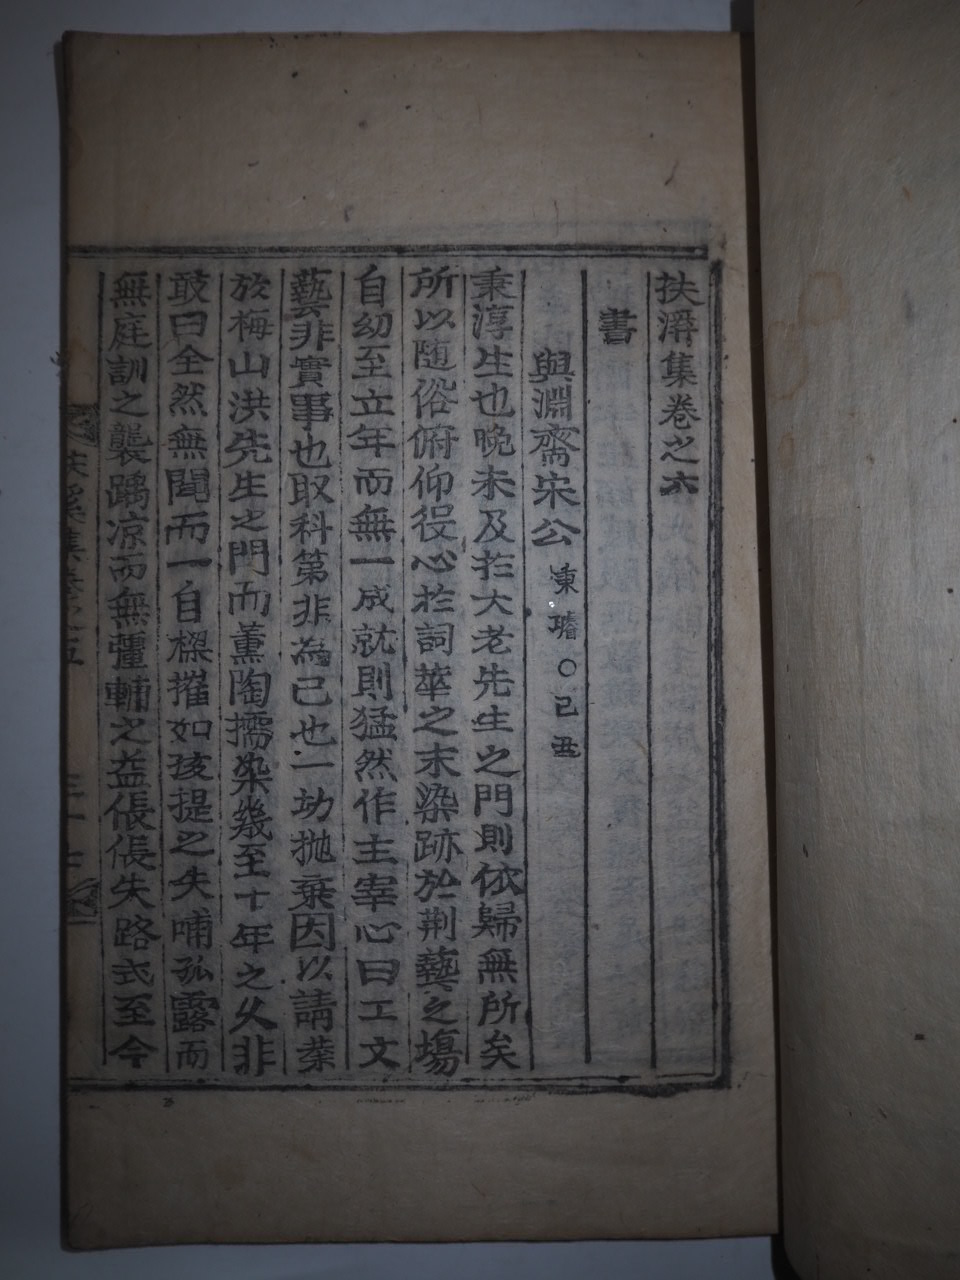 扶溪集卷之六
書
與淵齋宋公 東璿○己丑
秉淳生也晩未及於大老先生之門則依歸無所矣
所以随俗俯仰役心於詞華之末染跡於荆藝之塲
自幼至立年而無一成就則猛然作主宰心曰工文
藝非實事也取科第非為己也一切抛棄因以請業
於梅山洪先生之門而薰陶擩染幾至十年之久非
敢曰全然無聞而一自樑摧如孩提之失哺孤露而
無庭訓之襲踽凉而無彊輔之益倀倀失路式至今
扶溪集卷之五